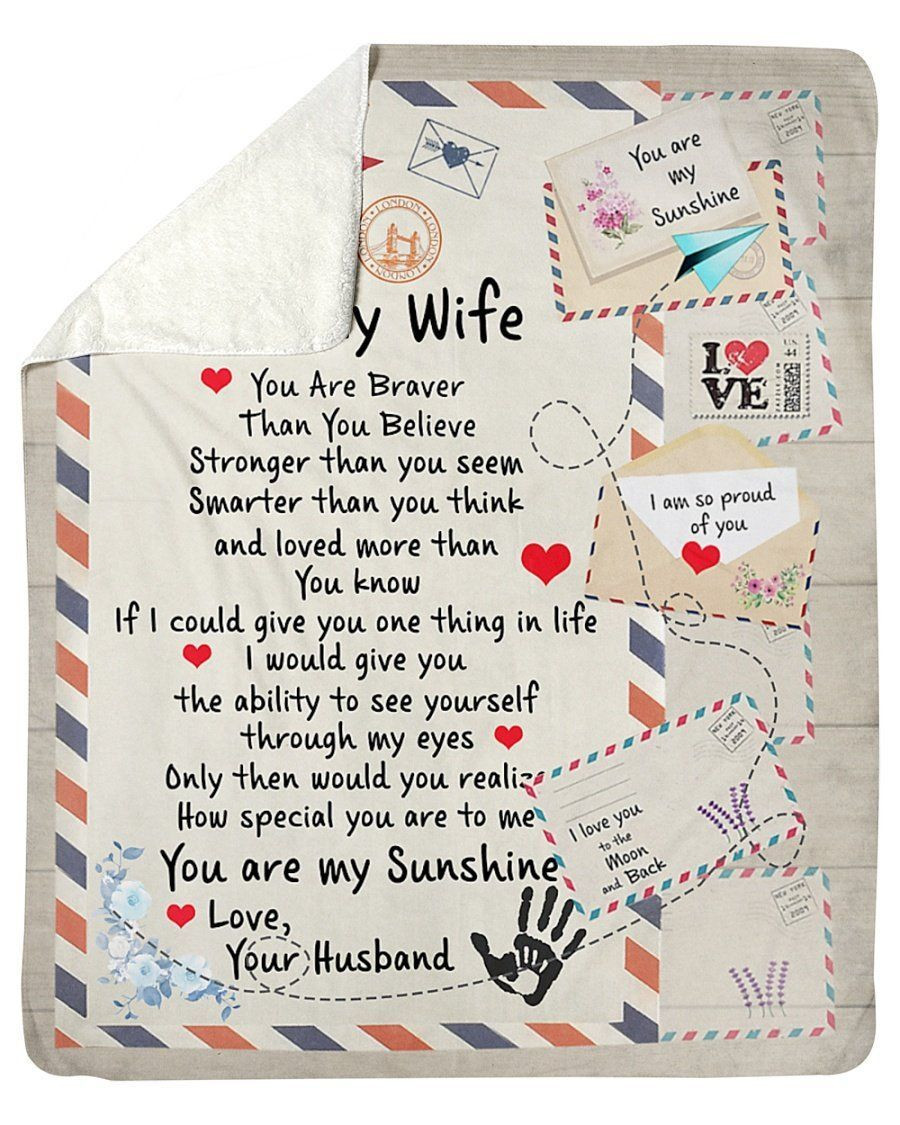 LONDON • LONDON • LONDON • LONDON
y Wife
You Are Braver
Than You Believe
Stronger than you seem
Smarter than you think
and loved more than
You know
If I could give you one thing in life
I would give you
the ability to see yourself
through my eyes
Only then would you realize
How special you are to me
You are my Sunshine
Love,
Your Husband
You are
my
Sunshine
NEW YORK
2009
2009
LOVE
U.S.
44
ZAZZLE.COM
I am so proud
of you
NEW YORK
2009
I love you
to the
Moon
and Back
NEW YORK
2009